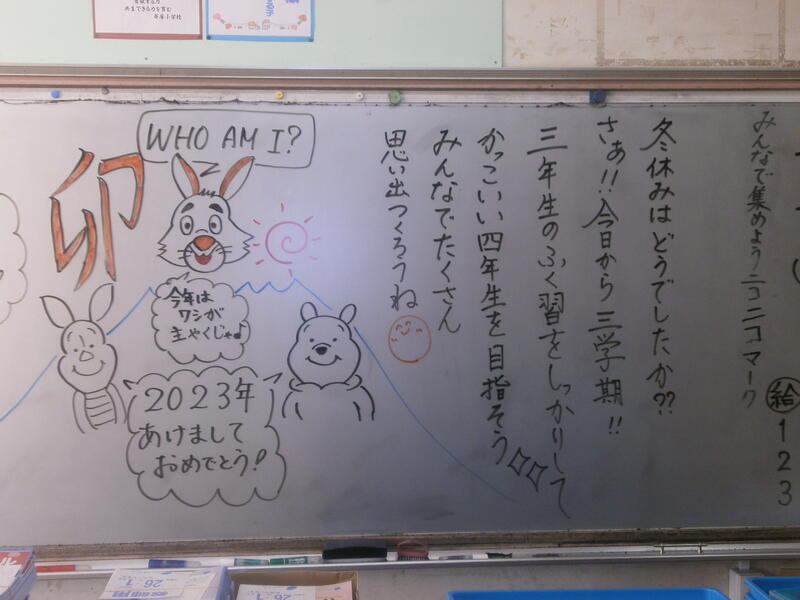 共生できる力を育む
WHO AM I?
卯
今年は
ワシが
主やくじゃ♪
2023年
あけまして
おめでとう!
みんなで集めようニコニコマーク
給
1
2
3
冬休みはどうでしたか??
さぁ!!今日から三学期!!
三年生のふく習をしっかりして
かっこいい四年生を目指そう
みんなでたくさん
思い出つくろうね
26-1
26-1